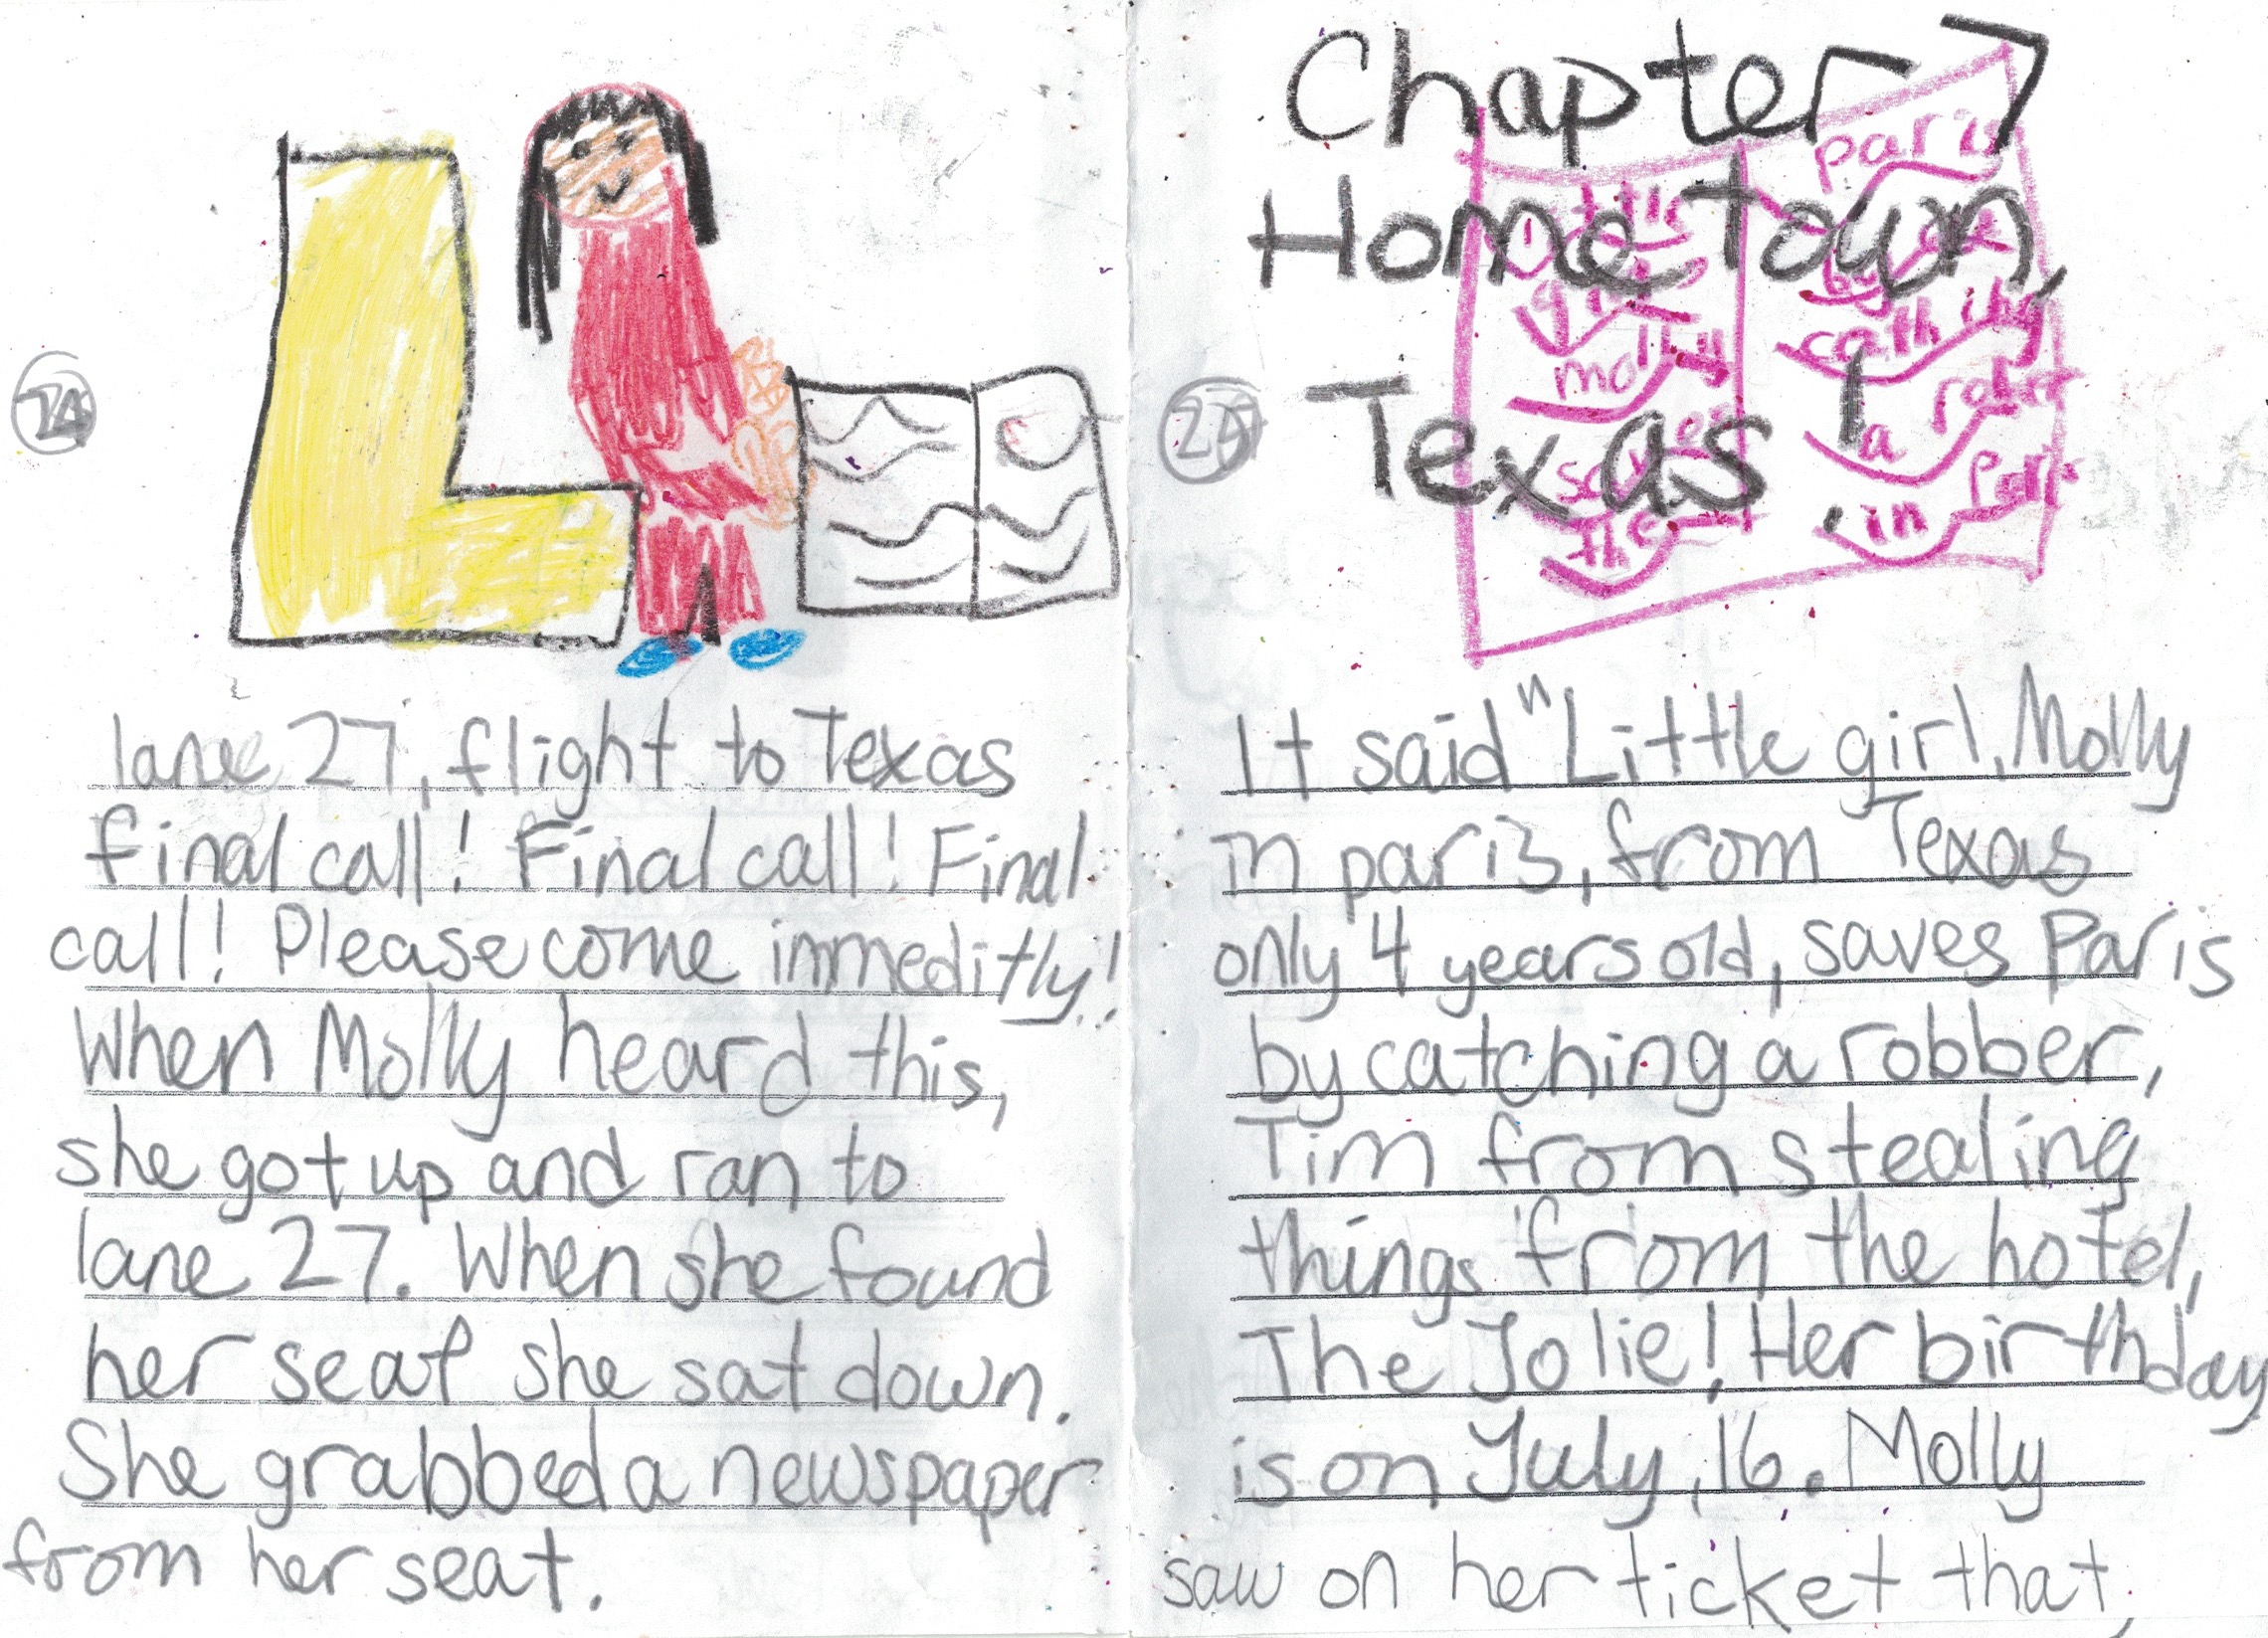 24
lane 27, flight to Texas
final call! Final call! Final
call! Please come immeditly!
When Molly heard this,
she got up and ran to
lane 27. When she found
her seat she sat down.
She grabbed a newspaper
from her seat.
Chapter 7
Home town,
Texas!
paris
little
girl
by
molly
cathing
saves
a robert
the
in Paris
25
It said "Little girl, Molly
in paris, from Texas
only 4 years old, saves Paris
by catching a robber,
Tim from stealing
things from the hotel,
The Jolie! Her birthday
is on July, 16. Molly
saw on her ticket that,